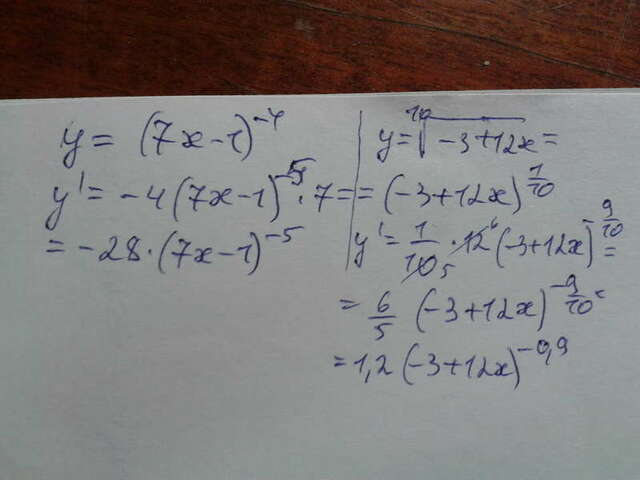 y = (7x-1)^-4
y' = -4(7x-1)^-5 · 7 =
= -28·(7x-1)^-5
y = ¹⁰√-3+12x =
= (-3+12x)^1/10
y' = 1/10 5 · 12 6 (-3+12x)^-9/10 =
= 6/5 (-3+12x)^-9/10 =
= 1,2(-3+12x)^-0,9